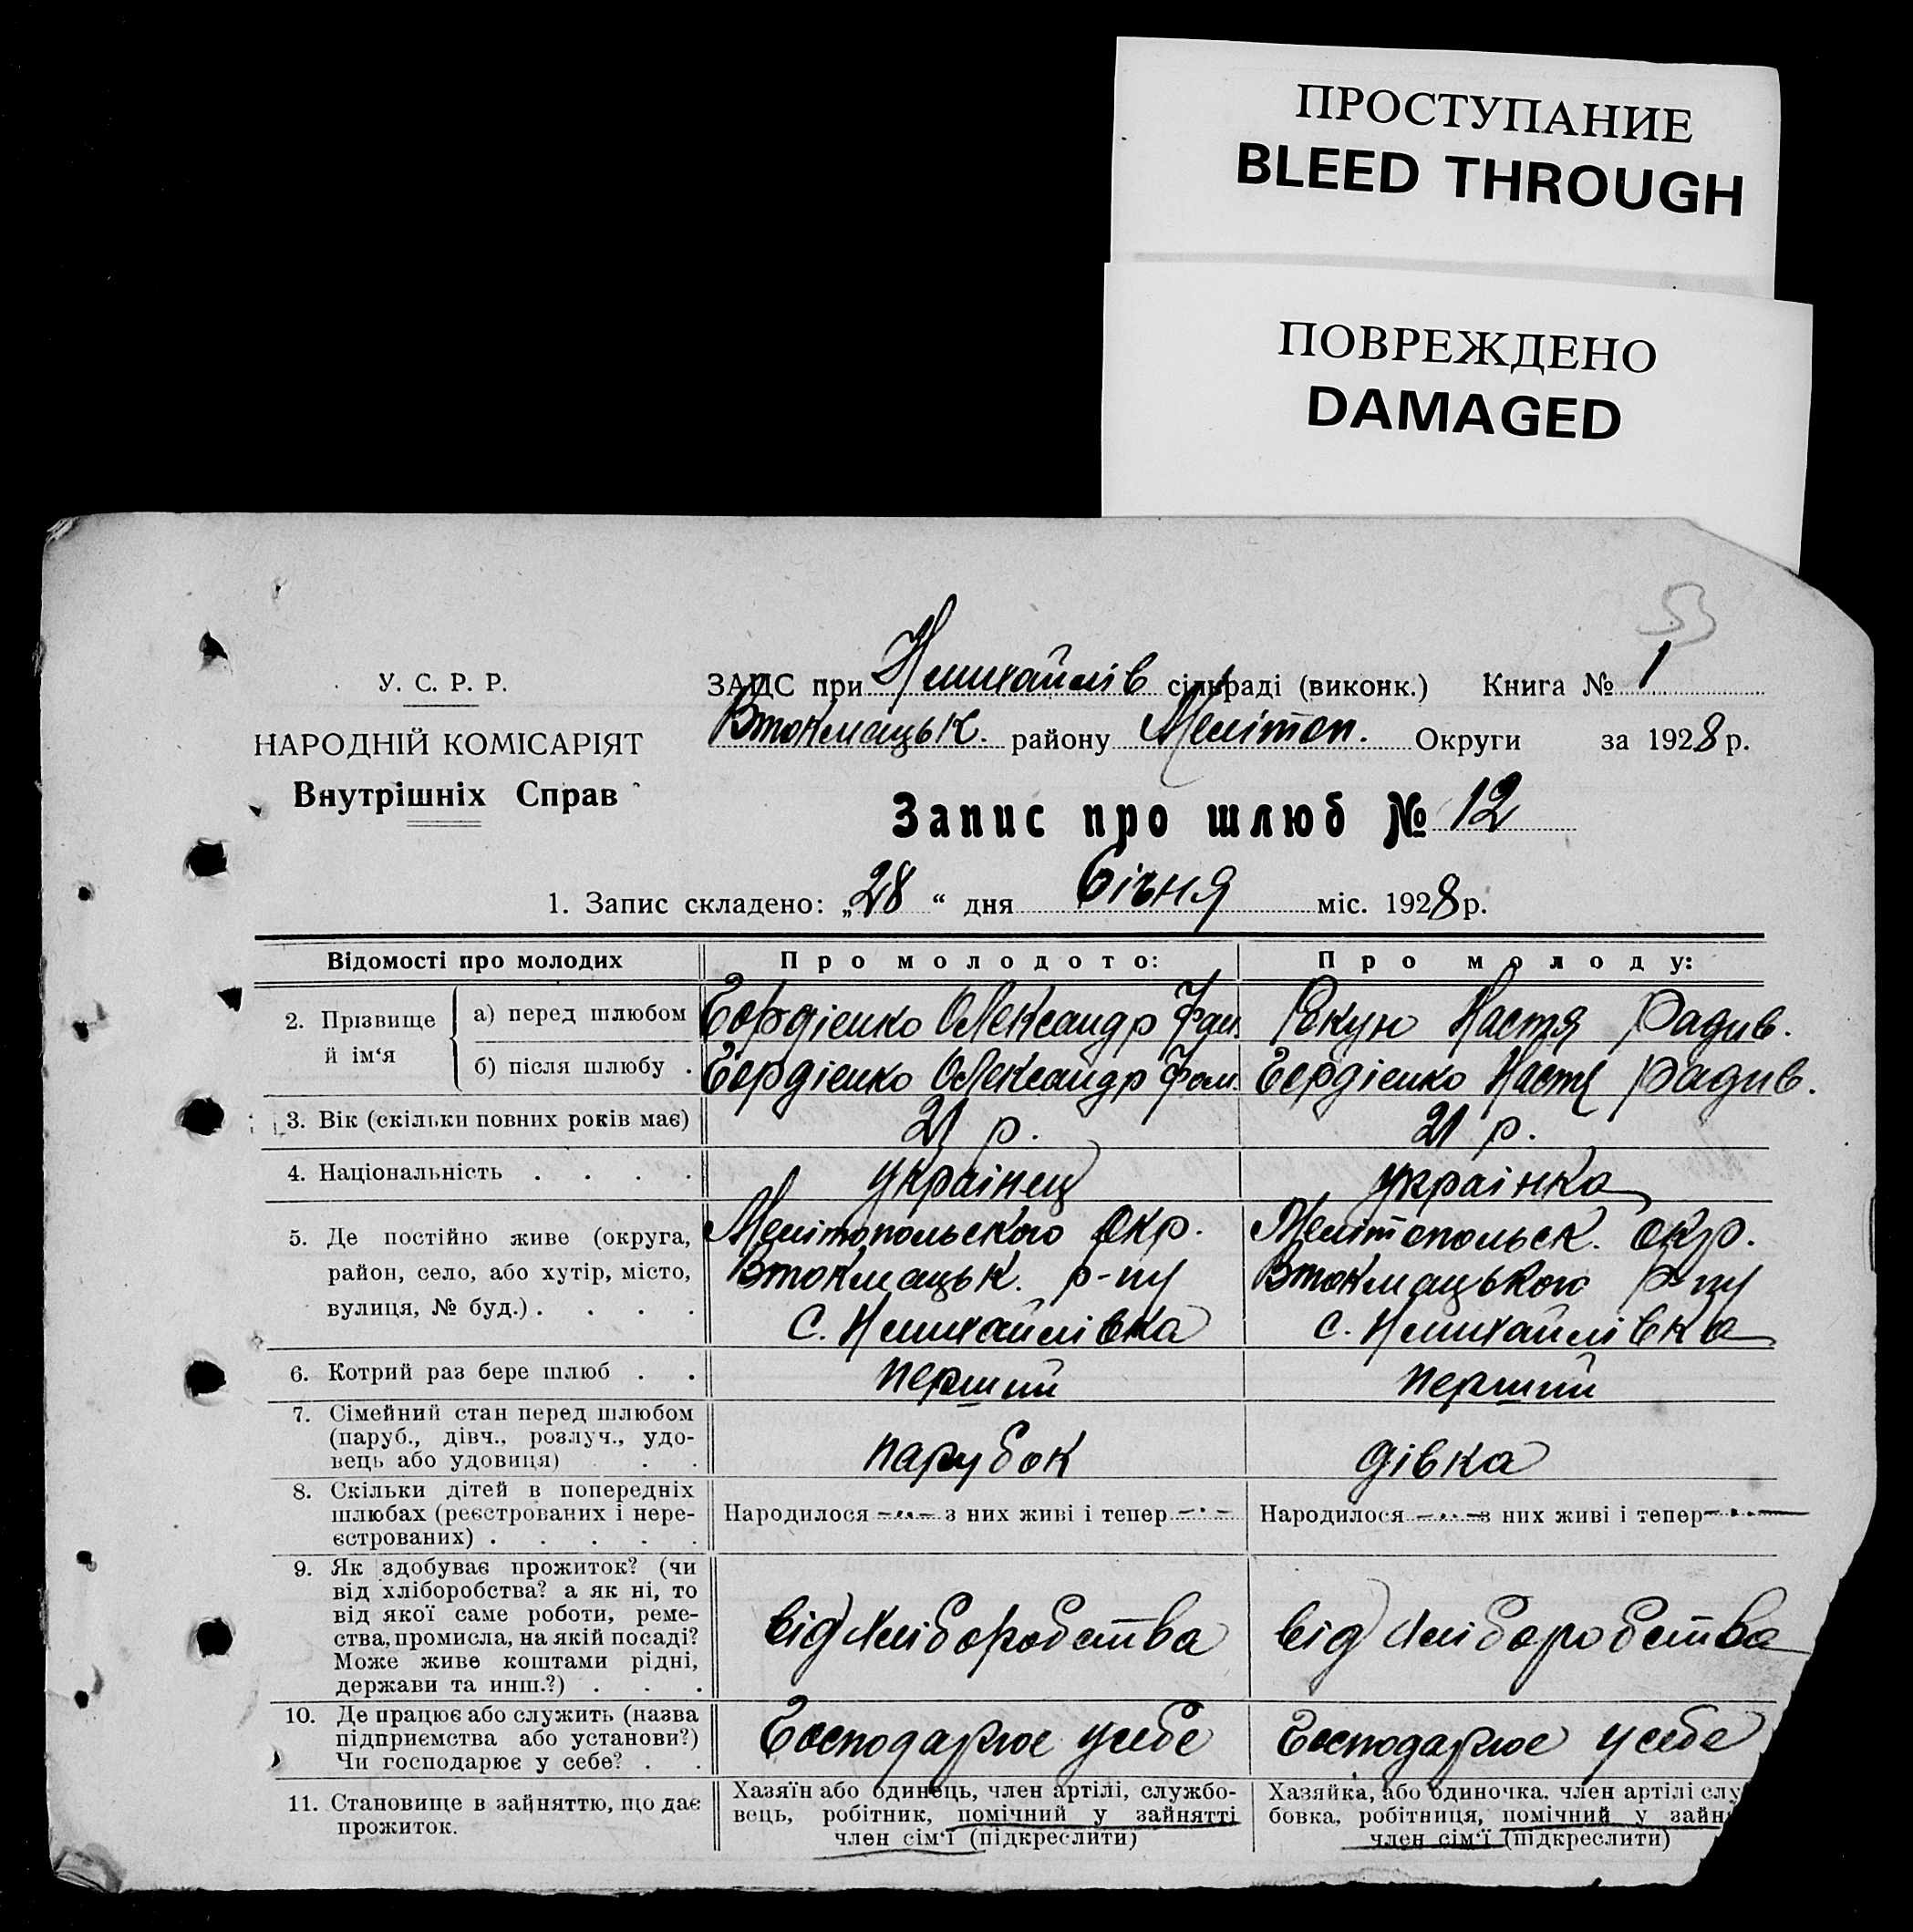 ПРОСТУПАНИЕ
BLEED THROUGH
ПОВРЕЖДЕНО
DAMAGED
53
У. С. Р. Р.
НАРОДНІЙ КОМІСАРІЯТ
Внутрішніх Справ
ЗАЦС при Нмихайлів сільраді (виконк.) Книга № 1
Втокмацьк. району Мелітоп. Округи за 1928 р.
Запис про шлюб № 12
1. Запис складено: „28“ дня Січня міс. 1928 р.
Відомості про молодих
Про молодого:
Про молоду:
2. Прізвище й ім‘я
а) перед шлюбом
Гордієнко Олександр Фом.
Якун Настя Радив.
б) після шлюбу .
Гордієнко Олександр Фом.
Гордієнко Настя Радив.
3. Вік (скільки повних років має)
21 р.
21 р.
4. Національність . . . .
українец
українка
5. Де постійно живе (округа,
район, село, або хутір, місто,
вулиця, № буд.) . . . .
Мелітопольского Окр.
Втокмацьк. р-ну
с. Нмихайлівка
Мелітопольск. окр.
Втокмацького р-ну
с. Нмихайлівка
6. Котрий раз бере шлюб . .
перший
перший
7. Сімейний стан перед шлюбом
(паруб., дівч., розлуч., удо-
вець або удовиця) . . .
парубок
дівка
8. Скільки дітей в попередніх
шлюбах (реєстрованих і нере-
єстрованих) . . . . .
Народилося -..- з них живі і тепер -.-
Народилося -..- з них живі і тепер -.-
9. Як здобуває прожиток? (чи
від хліборобства? а як ні, то
від якої саме роботи, реме-
ства, промисла, на якій посаді?
Може живе коштами рідні,
держави та инш.?) . . .
від хліборобства
від хліборобства
10. Де працює або служить (назва
підприємства або установи?)
Чи господарює у себе? . .
Господарює усебе
Господарює усебе
11. Становище в зайняттю, що дає
прожиток.
Хазяїн або одинець, член артілі, службо-
вець, робітник, помічний у зайнятті
член сім‘ї (підкреслити)
Хазяйка, або одиночка, член артілі слу
бовка, робітниця, помічний у зайн
член сім‘ї (підкреслити)